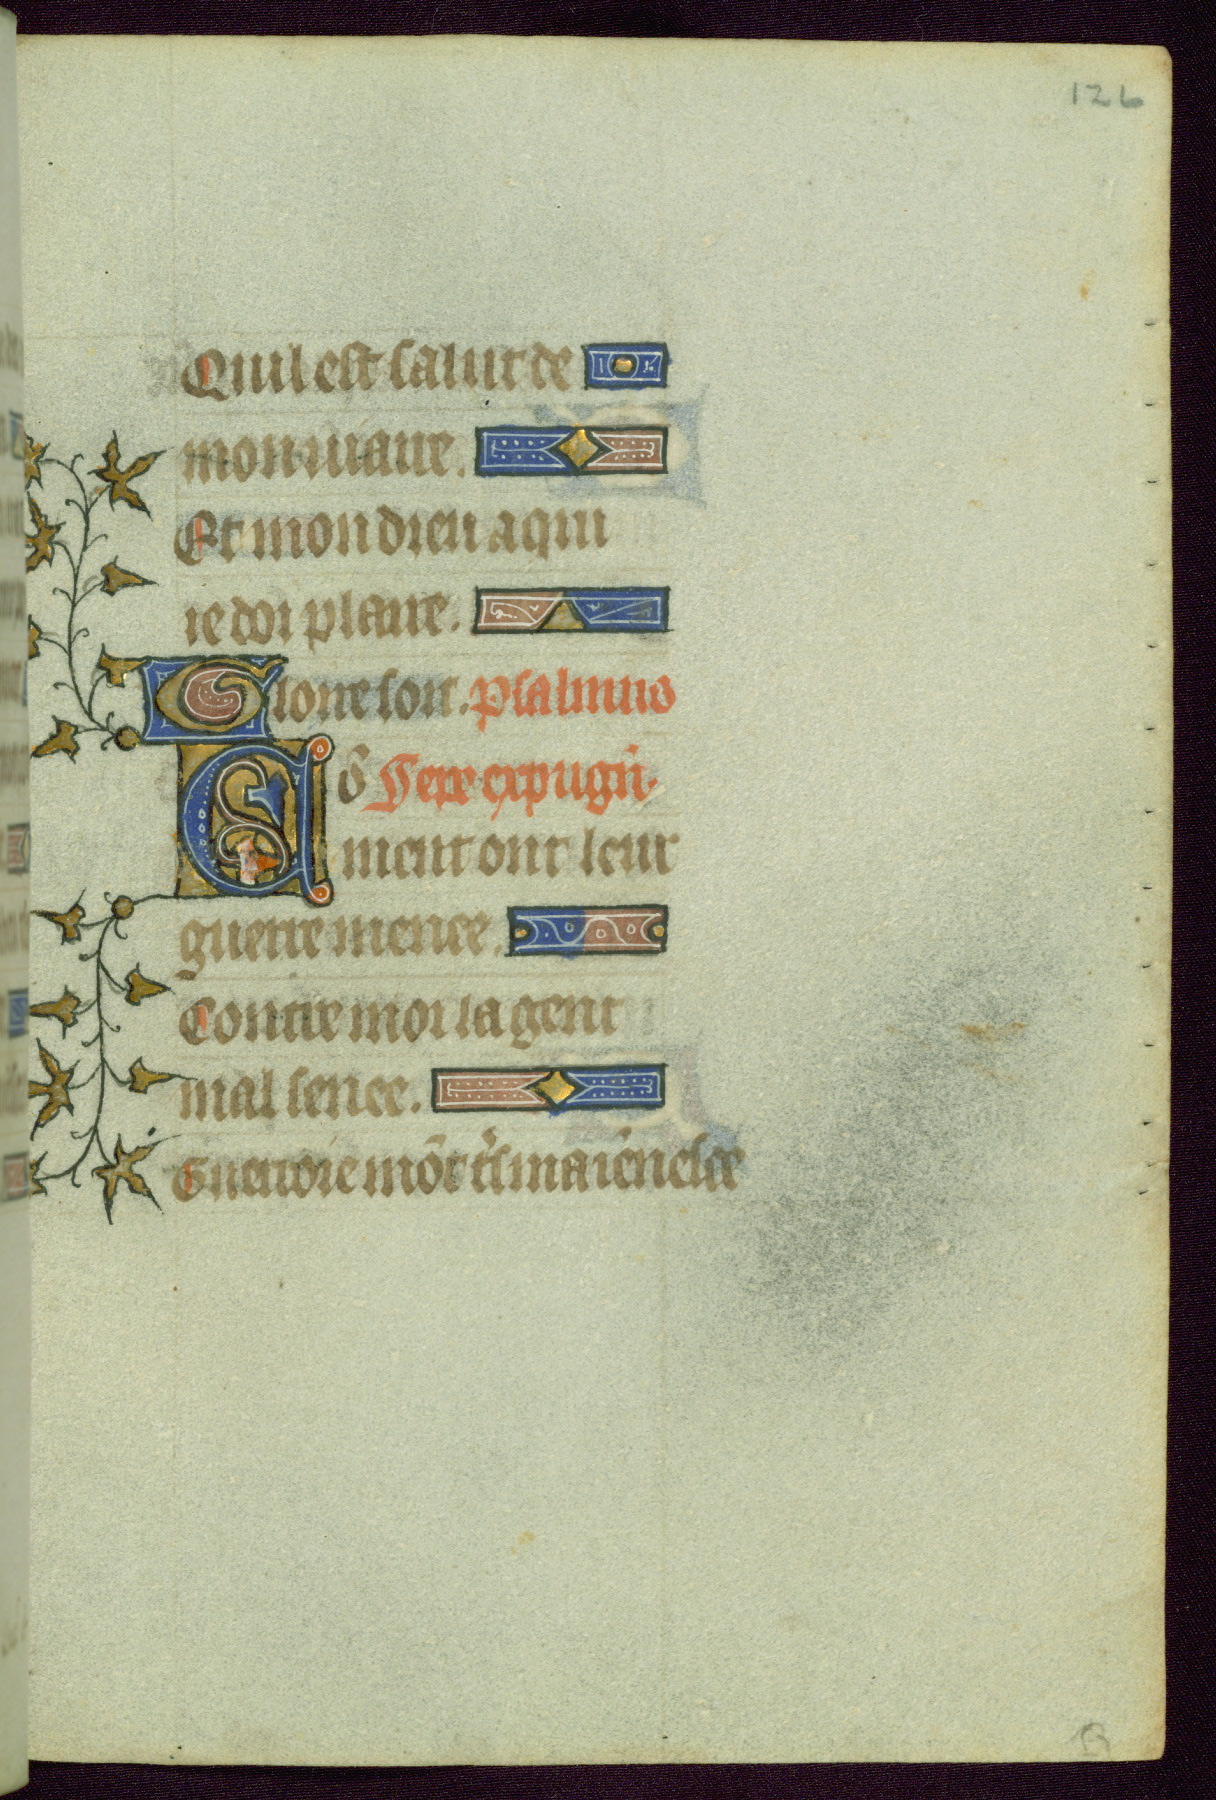 126
Qui il est salut de
mon uiaire.
Et mon dieu a qui
ie doi plaire.
Gloire soit. psalmus
Sepe expugn̄.
ment ont leur
guerre menee.
Contre moi la gent
mal senee.